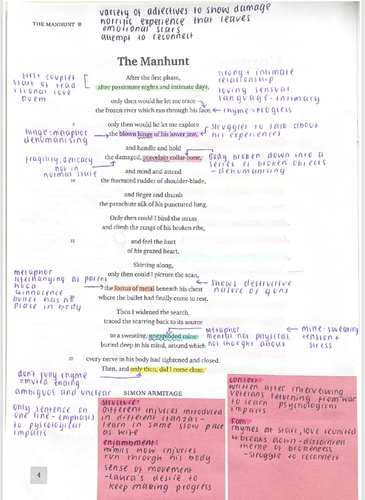 THE MANHUNT
variety of adjectives to show damage
horrific experience that leaves
emotional scars
attempt to reconnect
The Manhunt
first couplet
start of trad
itional love
poem
After the first phase,
after passionate nights and intimate days,
strong + intimate
relationship
loving sensual
language - intimacy
only then would he let me trace
the frozen river which ran through his face,
rhyme = progress
only then would he let me explore
the blown hinge of his lower jaw,
hinge = metaphor
dehumanising
struggles to talk about
his experiences
and handle and hold
the damaged, porcelain collar-bone,
fragility, delicacy
not in
normal state
Body broken down into a
series of broken objects
- dehumanising
and mind and attend
the fractured rudder of shoulder-blade,
10
and finger and thumb
the parachute silk of his punctured lung.
Only then could I bind the struts
and climb the rungs of his broken ribs,
15
and feel the hurt
of his grazed heart.
Skirting along,
only then could I picture the scan,
the foetus of metal beneath his chest
where the bullet had finally come to rest.
metaphor
hood
+ innocence
place in body
shows destructive
nature of guns
Then I widened the search,
traced the scarring back to its source
to a sweating, unexploded mine
buried deep in his mind, around which
metaphor
mental not physical,
not thought about
mine - sweating
tension +
stress
25
every nerve in his body had tightened and closed.
Then, and only then, did I come close.
don't fully rhyme
= muted ending
ambiguous and unclear
only sentence on
one line - emphasis
to psycological
impacts
SIMON ARMITAGE
structure:
Different injuries introduced
in different stanzas -
learn in same slow pace
as wife
enjambment:
mimics how injuries
run through his body
sense of movement
- Laura's desire to
keep making progress
context:
written after interviewing
veterans returning from war
to learn psychological
impacts
Form:
rhymes at start, love reunited
↓ breaks down - disjointed
theme of brokeness
- struggle to reconnect
4